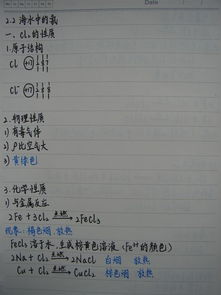 Date
2.2 海水中的氯
一、Cl₂的性质
1.原子结构
Cl +17 2 8 7
Cl⁻ +17 2 8 8
2.物理性质
1) 有毒气体
2) ρ比空气大
3) 黄绿色
3.化学性质
1) 与金属反应
2Fe + 3Cl₂ 点燃 2FeCl₃
现象: 褐色烟 放热
FeCl₃ 溶于水,生成棕黄色溶液 (Fe³⁺的颜色)
2Na + Cl₂ 点燃 2NaCl 白烟 放热
Cu + Cl₂ 点燃 CuCl₂ 棕色烟 放热